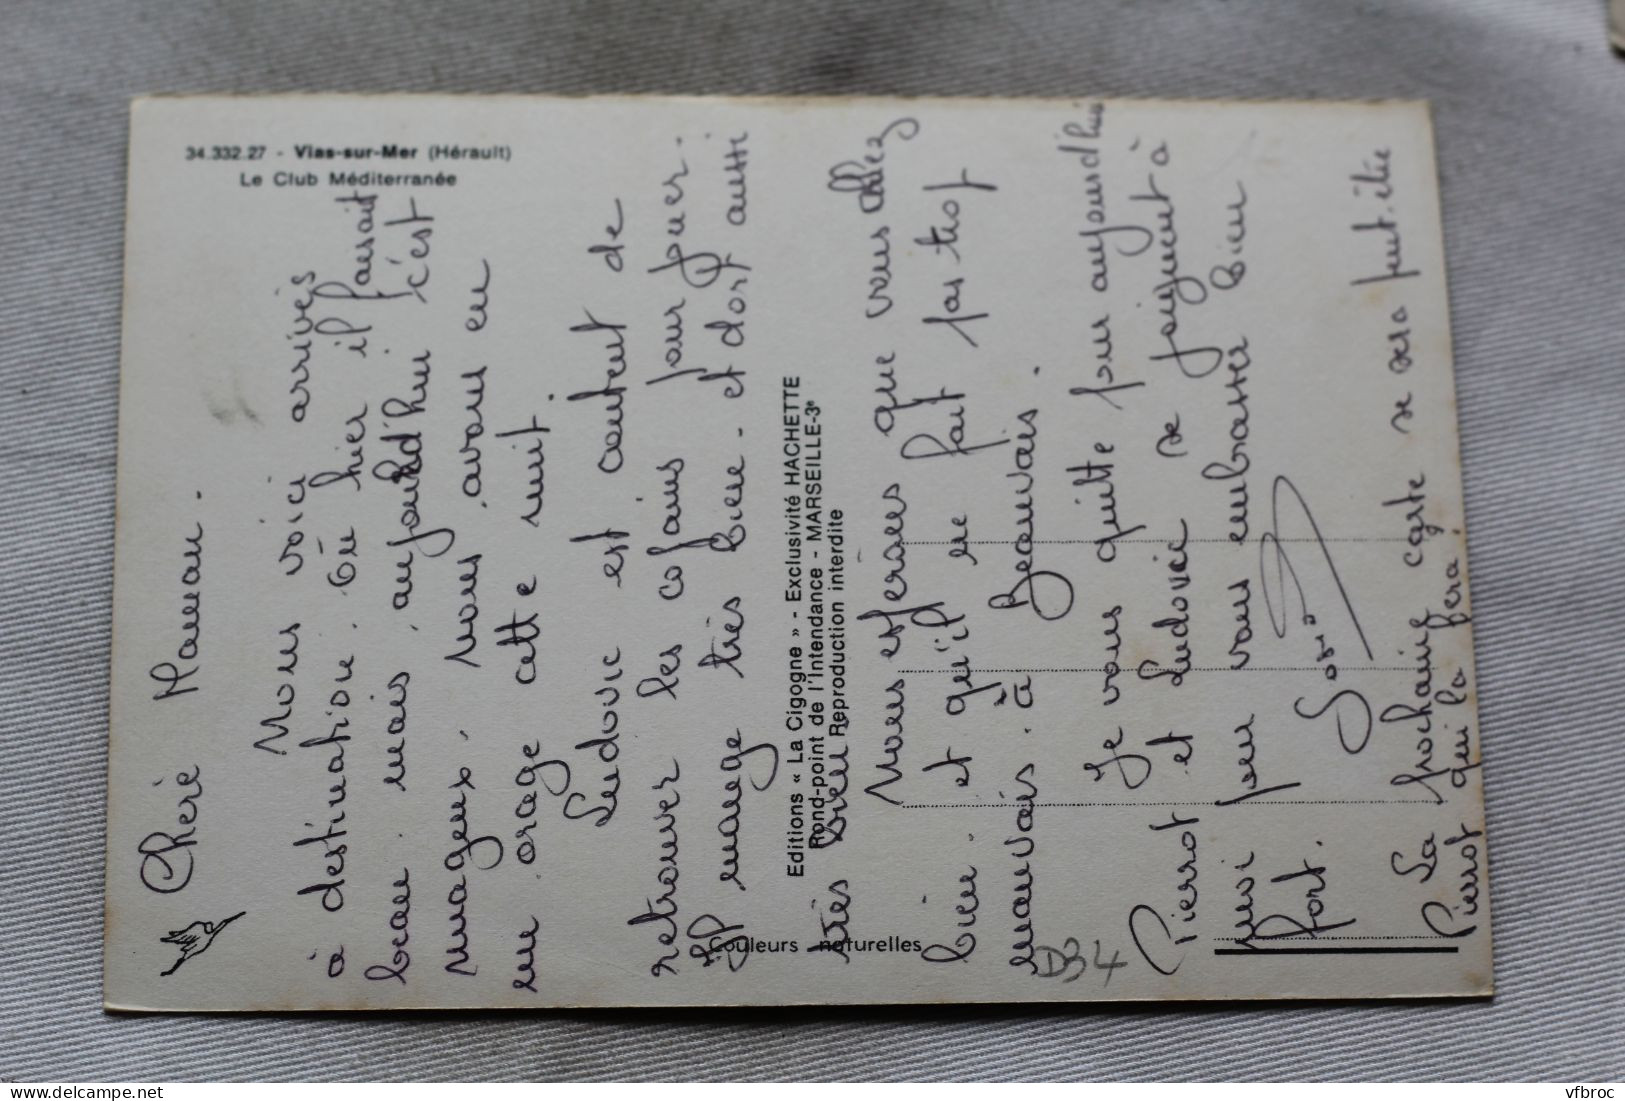 34.332.27 - Vias-sur-Mer (Hérault)
Le Club Méditerranée
Chère Maman.
Nous voici arrivés
à destination. Où hier il faisait
beau. mais aujourd'hui c'est
nuageux. nous avons eu
un orage cette nuit.
Ludovic est content de
retrouver les copains pour jouer.
Il mange très bien. et dort aussi
très bien
Nous espérons que vous allez
bien. et qu'il ne fait pas trop
mauvais. à Beauvais.
Je vous quitte pour aujourd'hui
Pierrot et Ludovic se joignent à
moi pour vous embrasser bien
fort.
La prochaine carte se sera peut-être
Pierrot qui la fera.
Editions « La Cigogne » - Exclusivité HACHETTE
Rond-point de l'Intendance - MARSEILLE-3e
Reproduction interdite
Couleurs naturelles
D34
vfbroc